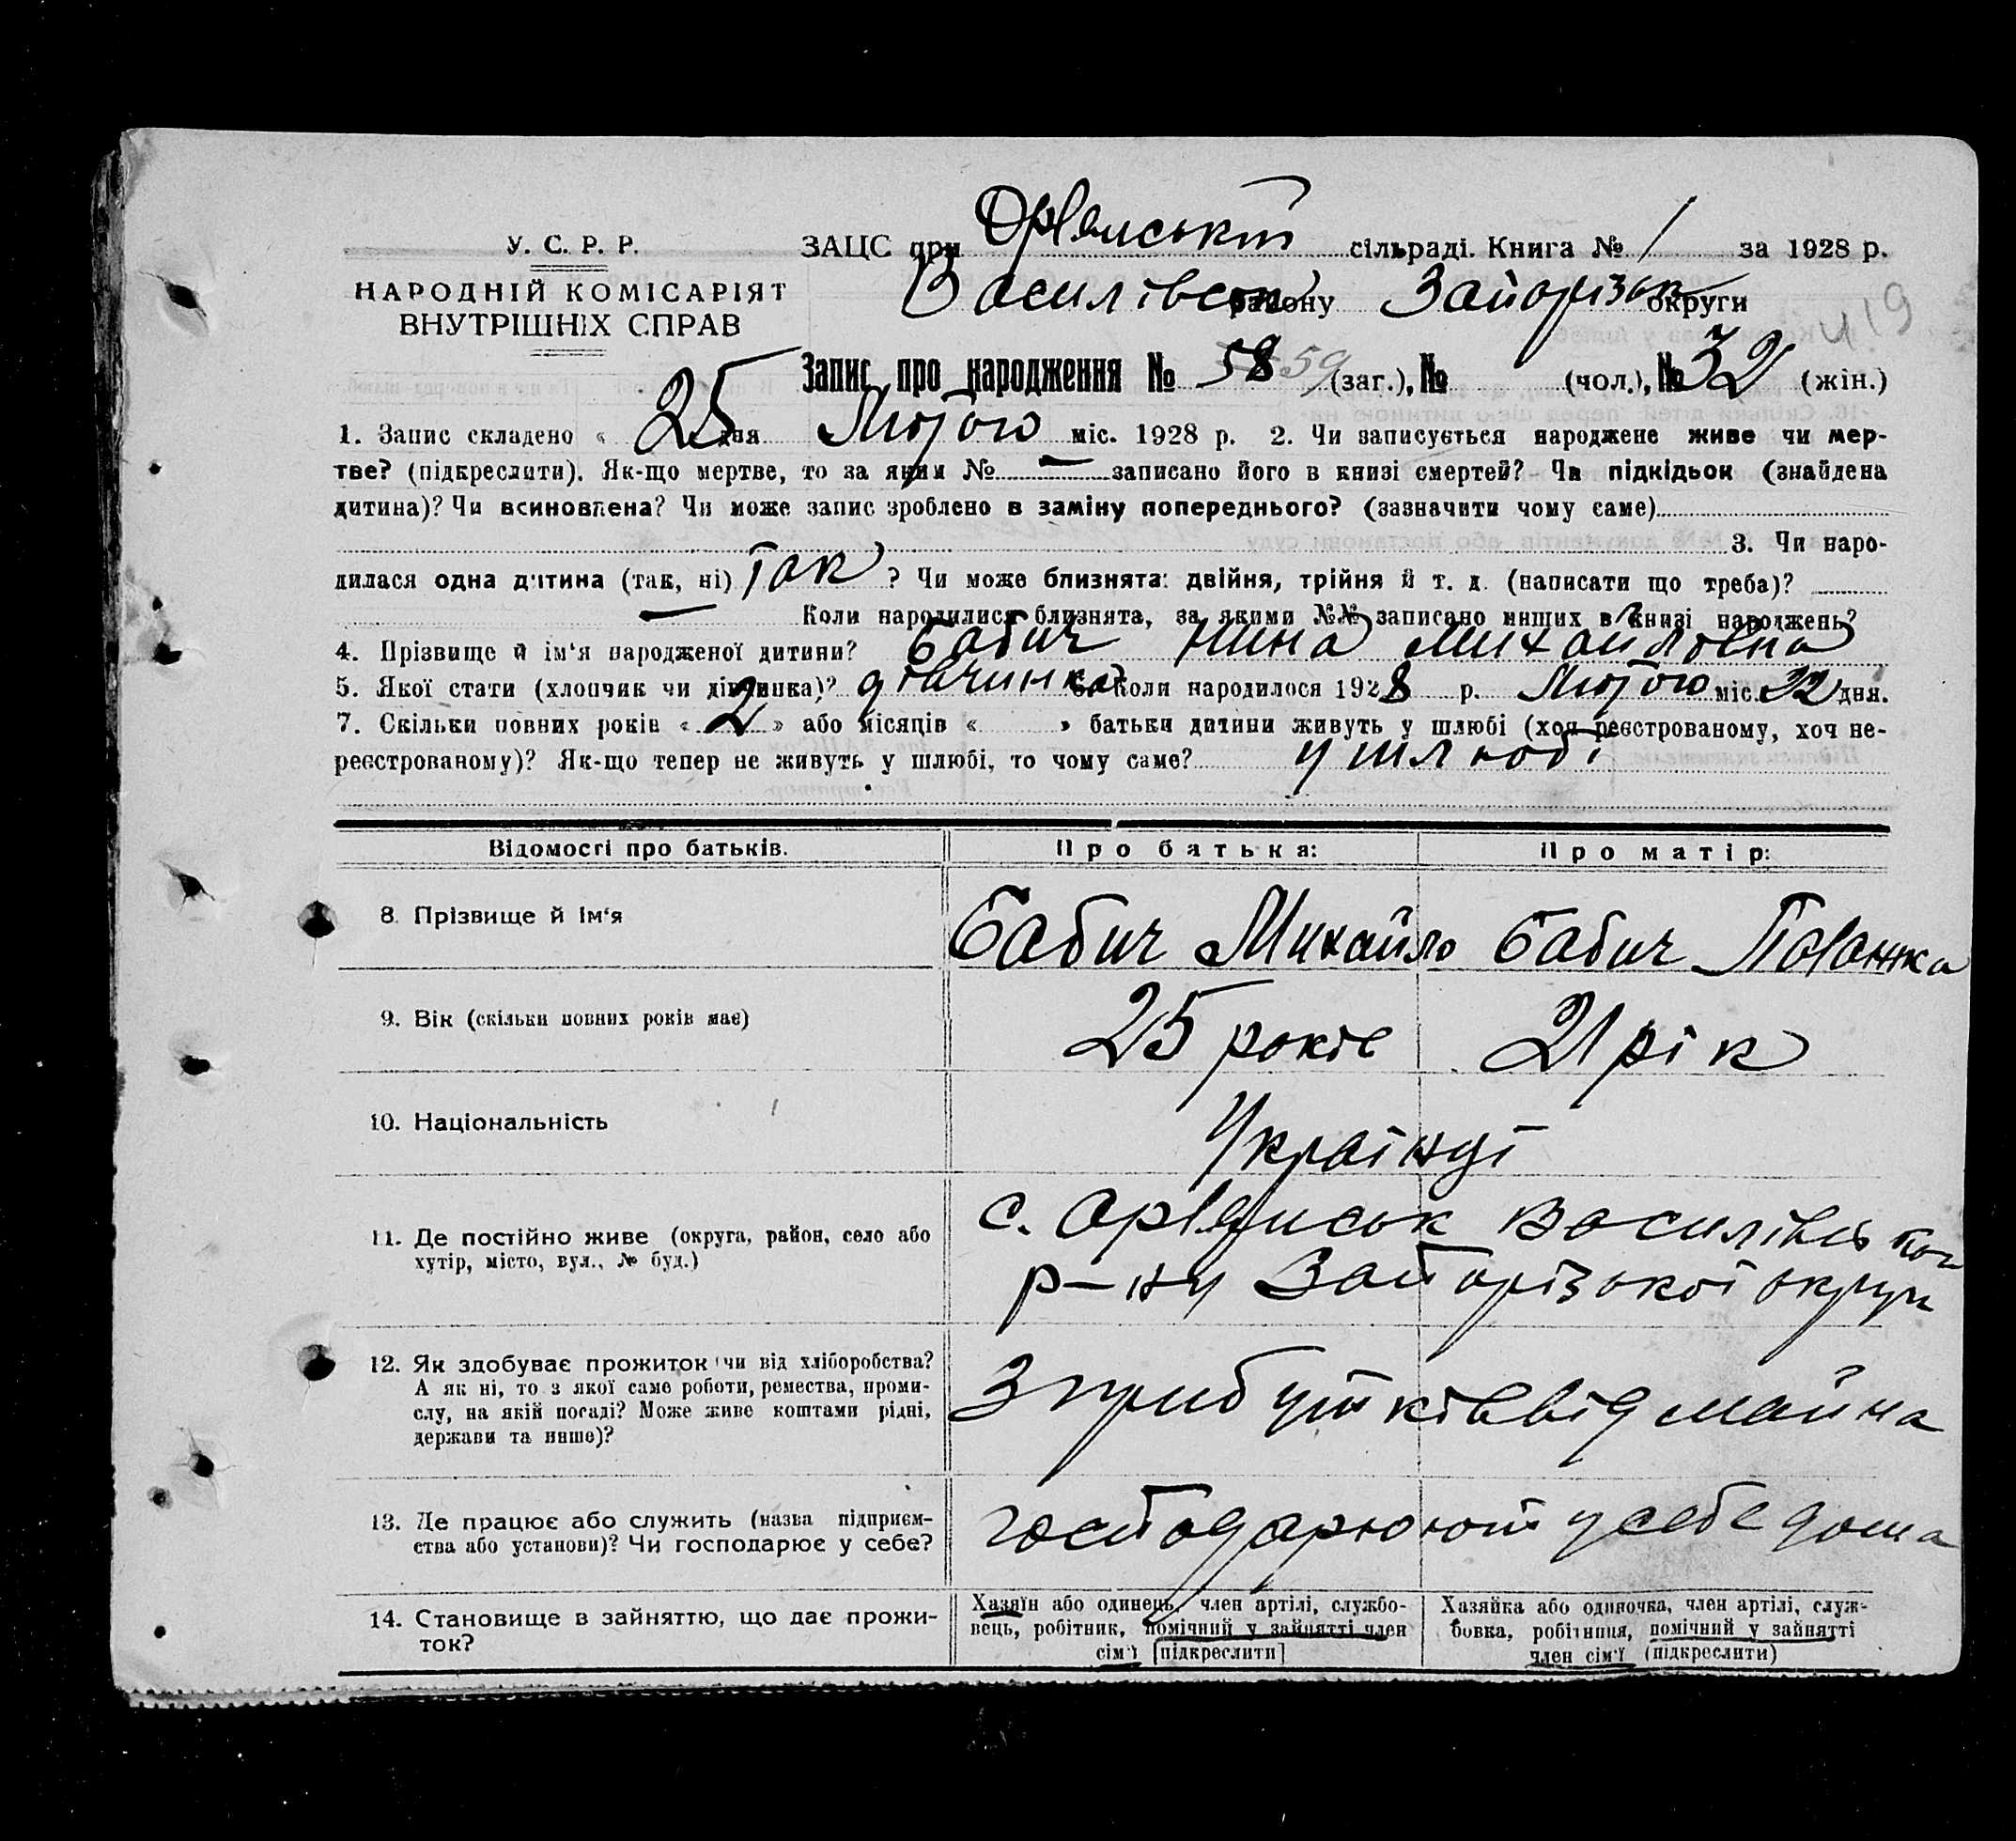 У. С. Р. Р.
НАРОДНІЙ КОМІСАРІЯТ
ВНУТРІШНІХ СПРАВ
ЗАЦС при Орлянській сільраді. Книга № 1 за 1928 р.
Василівськ району Запорізьк округи
419
Запис про народження № 58 59 (заг.), № (чол.), № 32 (жін.)
1. Запис складено « 25 дня Лютого міс. 1928 р. 2. Чи записується народжене живе чи мер-
тве? (підкреслити). Як-що мертве, то за яким № — записано його в книзі смертей? Чи підкідьок (знайдена
дитина)? Чи всиновлена? Чи може запис зроблено в заміну попереднього? (зазначити чому саме)
3. Чи наро-
дилася одна дитина (так, ні) Так ? Чи може близнята: двійня, трійня й т. д. (написати що треба)?
— Коли народилися близнята, за якими №№ записано инших в книзі народжень?
4. Прізвище й ім'я народженої дитини? Бабич Нина Михайловна
5. Якої стати (хлопчик чи дівчинка)? дівчинка 6. Коли народилося 1928 р. Лютого міс. 22 дня.
7. Скільки повних років « 2 » або місяців « » батьки дитини живуть у шлюбі (хоч реєстрованому, хоч не-
реєстрованому)? Як-що тепер не живуть у шлюбі, то чому саме? у шлюбі
Відомості про батьків. Про батька: Про матір:
8. Прізвище й ім'я Бабич Михайло Бабич
9. Вік (скільки повних років має) 25 років 21 рік
10. Національність Українці
11. Де постійно живе (округа, район, село або
хутір, місто, вул., № буд.)
с. Орлянськ Василівської
р-ну Запорізької округи
12. Як здобуває прожиток чи від хліборобства?
А як ні, то з якої саме роботи, ремества, проми-
слу, на якій посаді? Може живе коштами рідні,
держави та инше)?
З прибутків від майна
13. Де працює або служить (назва підприєм-
ства або установи)? Чи господарює у себе?
господарюють у себе дома
14. Становище в зайняттю, що дає прожи-
ток?
Хазяїн або одинець, член артілі, службо-
вець, робітник, помічний у зайнятті член
сім'ї [підкреслити]
Хазяйка або одиночка, член артілі, служ-
бовка, робітниця, помічний у зайнятті
член сім'ї (підкреслити)